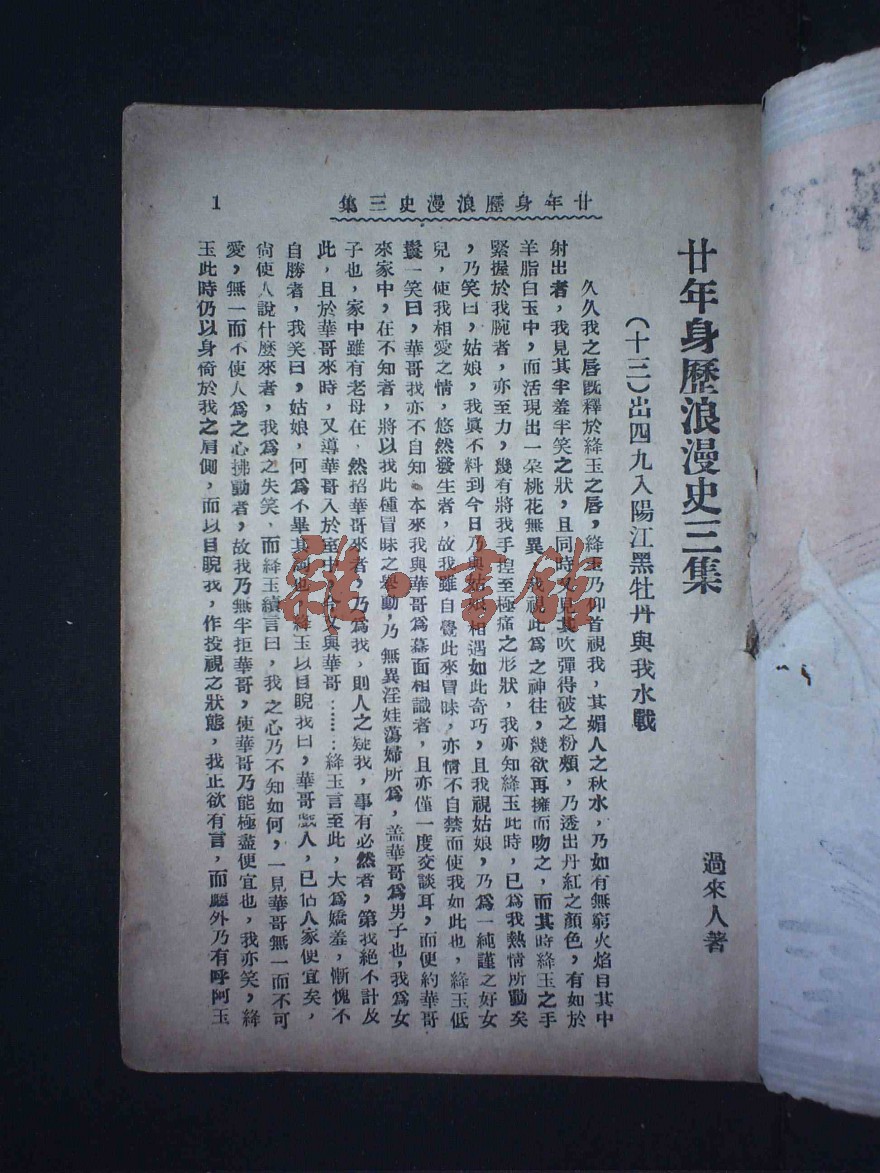 集三史漫浪歷身年廿
1
廿年身歷浪漫史三集
過來人著
(十三)出四九入陽江黑牡丹與我水戰
久久我之唇既釋於絳玉之唇，絳玉乃仰首視我，其媚人之秋水，乃如有無窮火焰自其中
射出者，我見其半羞半笑之狀，且同時又見其吹彈得破之粉頰，乃透出丹紅之顏色，有如於
羊脂白玉中，而活現出一朵桃花無異，我視此為之神往，幾欲再擁而吻之，而其時絳玉之手
緊握於我腕者，亦至力，幾有將我手捏至極痛之形狀，我亦知絳玉此時，已為我熱情所動矣
，乃笑曰，姑娘，我眞不料到今日乃與姑娘相遇如此奇巧，且我視姑娘，乃為一純謹之好女
兒，使我相愛之情，悠然發生者，故我雖自覺此來冒昧，亦情不自禁而使我如此也，絳玉低
鬟一笑曰，華哥我亦不自知。本來我與華哥為幕面相識者，且亦僅一度交談耳，而便約華哥
來家中，在不知者，將以我此種冒昧之舉動，乃無異淫娃蕩婦所為，盖華哥為男子也，我為女
子也，家中雖有老母在，然招華哥來者，乃為我，則人之疑我，事有必然者，第我絕不計及
此，且於華哥來時，又導華哥入於室中，今又與華哥……絳玉言至此，大為嬌羞，慚愧不
自勝者，我笑曰，姑娘，何為不畢其詞也，絳玉以目睨我曰，華哥戲人，已佔人家便宜矣，
尙使人說什麼來者，我為之失笑，而絳玉續言曰，我之心乃不知如何，一見華哥無一而不可
愛，無一而不使人為之心拂動者，故我乃無半拒華哥，使華哥乃能極盡便宜也，我亦笑，絳
玉此時仍以身倚於我之肩側，而以目睨我，作投視之狀態，我止欲有言，而廳外乃有呼阿玉
雜·書館